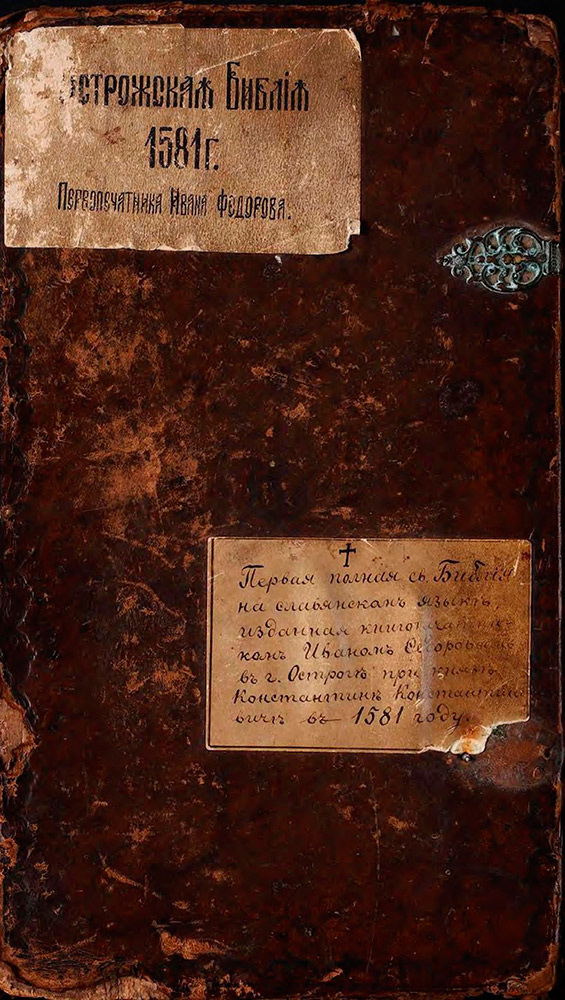 Острожская Библія
1581 г.
Первопечатника Ивана Федорова.
Первая полная св. Библія
на славянскомъ языкѣ,
изданная книгопечатни-
комъ Иваномъ Ѳедоровымъ
въ г. Острогѣ при князѣ
Константинѣ Константино
вичѣ въ 1581 году.